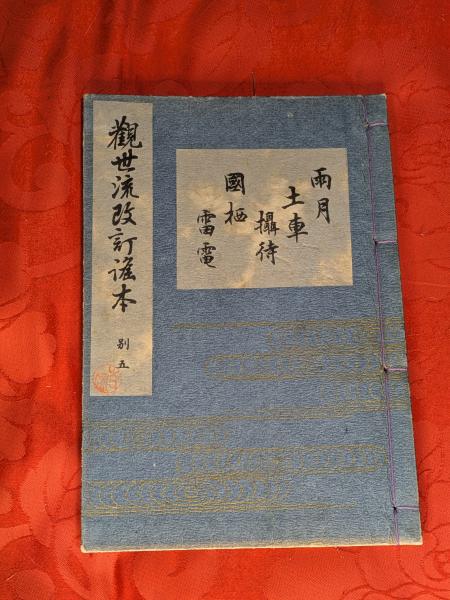 觀世流改訂謠本
別五
雨月
土車
攝待
國栖
雷電